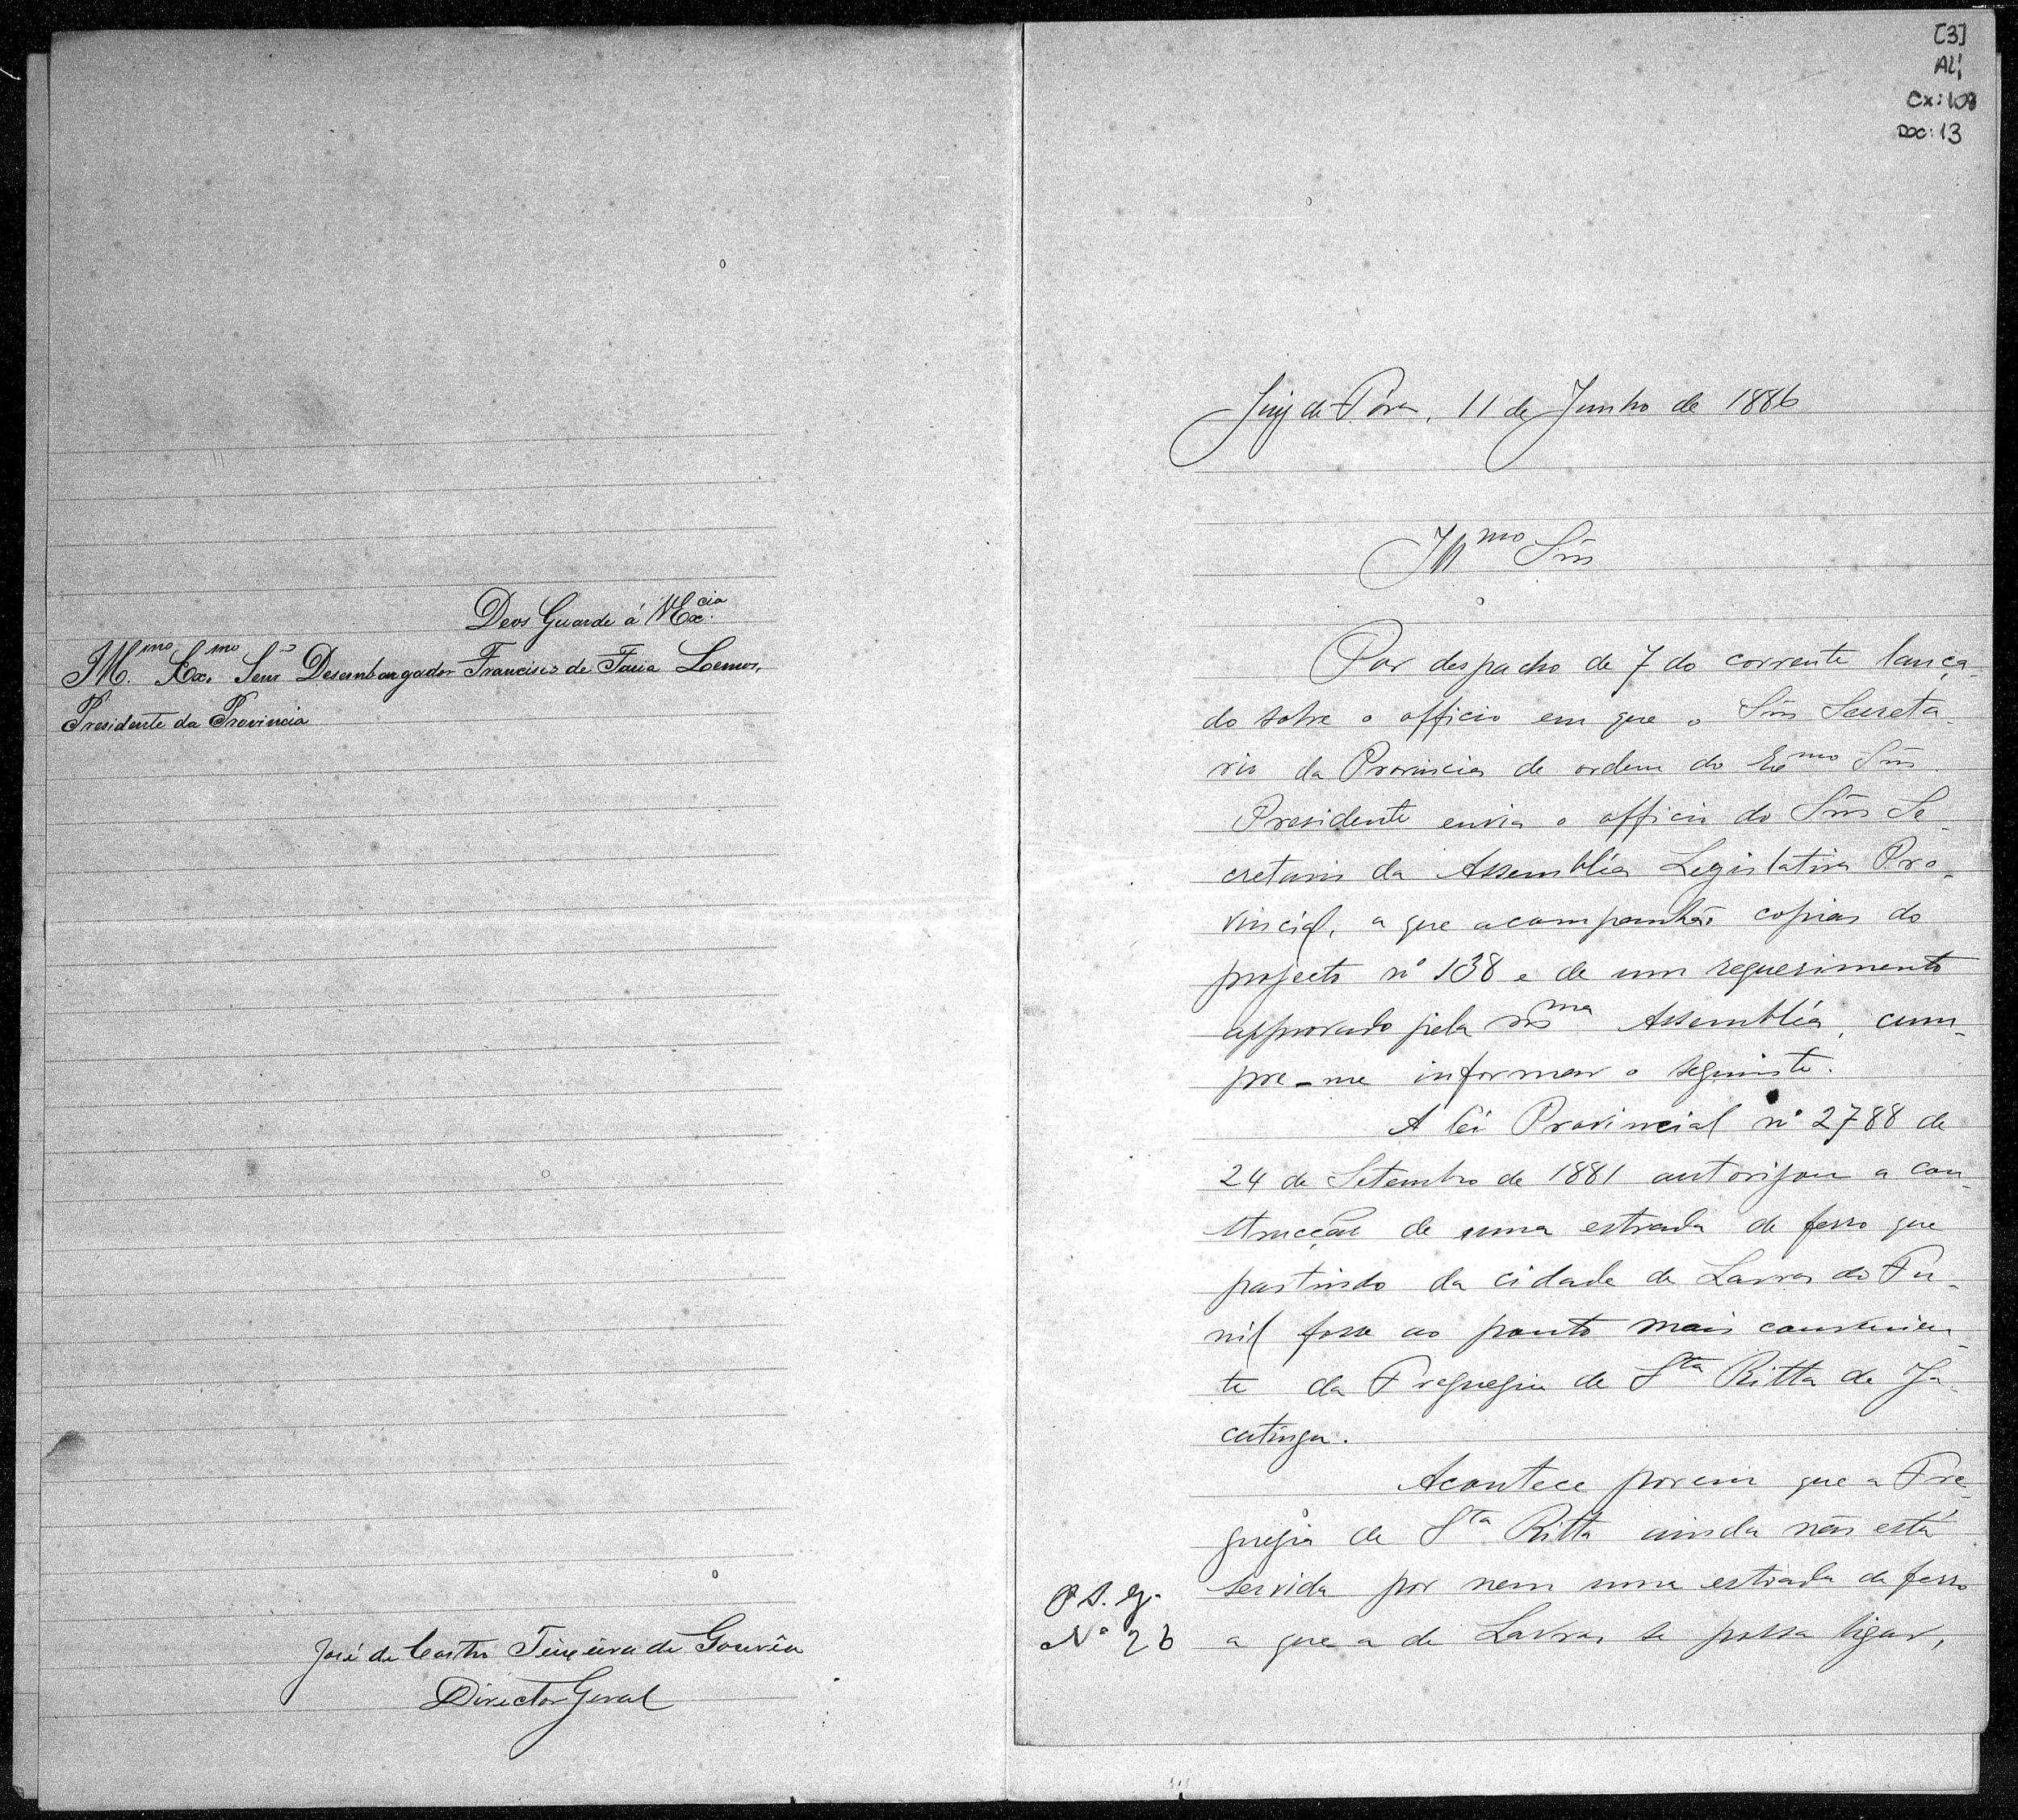 Deos Guarde á VEx.cia
Illmo. Exmo. Senr Desembargador Francisco de Faria Lemos,
Presidente da Provincia
José de Castro Teixeira de Gouvêa
Director Geral
[3]
AL1
Cx: 108
DOC: 13
Juiz de Fóra, 11 de Junho de 1886
Illmo Snr
Por despacho de 7 do corrente lança-
do sobre o officio em que o Snr Secreta-
rio da Provincia de ordem do Exmo Snr
Presidente envia o officio do Snr Se-
cretario da Assembléa Legislativa Pro-
vincial, a que acompanhão copias do
projecto nº 138 e de um requerimento
approvado pela msma Assembléa, cum-
pre-me informar o seguinte.
A lei Provincial nº 2788 de
24 de Setembro de 1881 autorisou a con-
strucção de uma estrada de ferro que
partindo da cidade de Lavras do Fu-
nil fosse ao ponto mais convenien-
te da Freguezia de Sta Ritta de Ja-
cutinga.
Acontece porem que a Fre-
guezia de Sta Ritta ainda não está
servida por nem uma estrada de ferro
a que a de Lavras se possa ligar,
P. S. G.
Nº 26